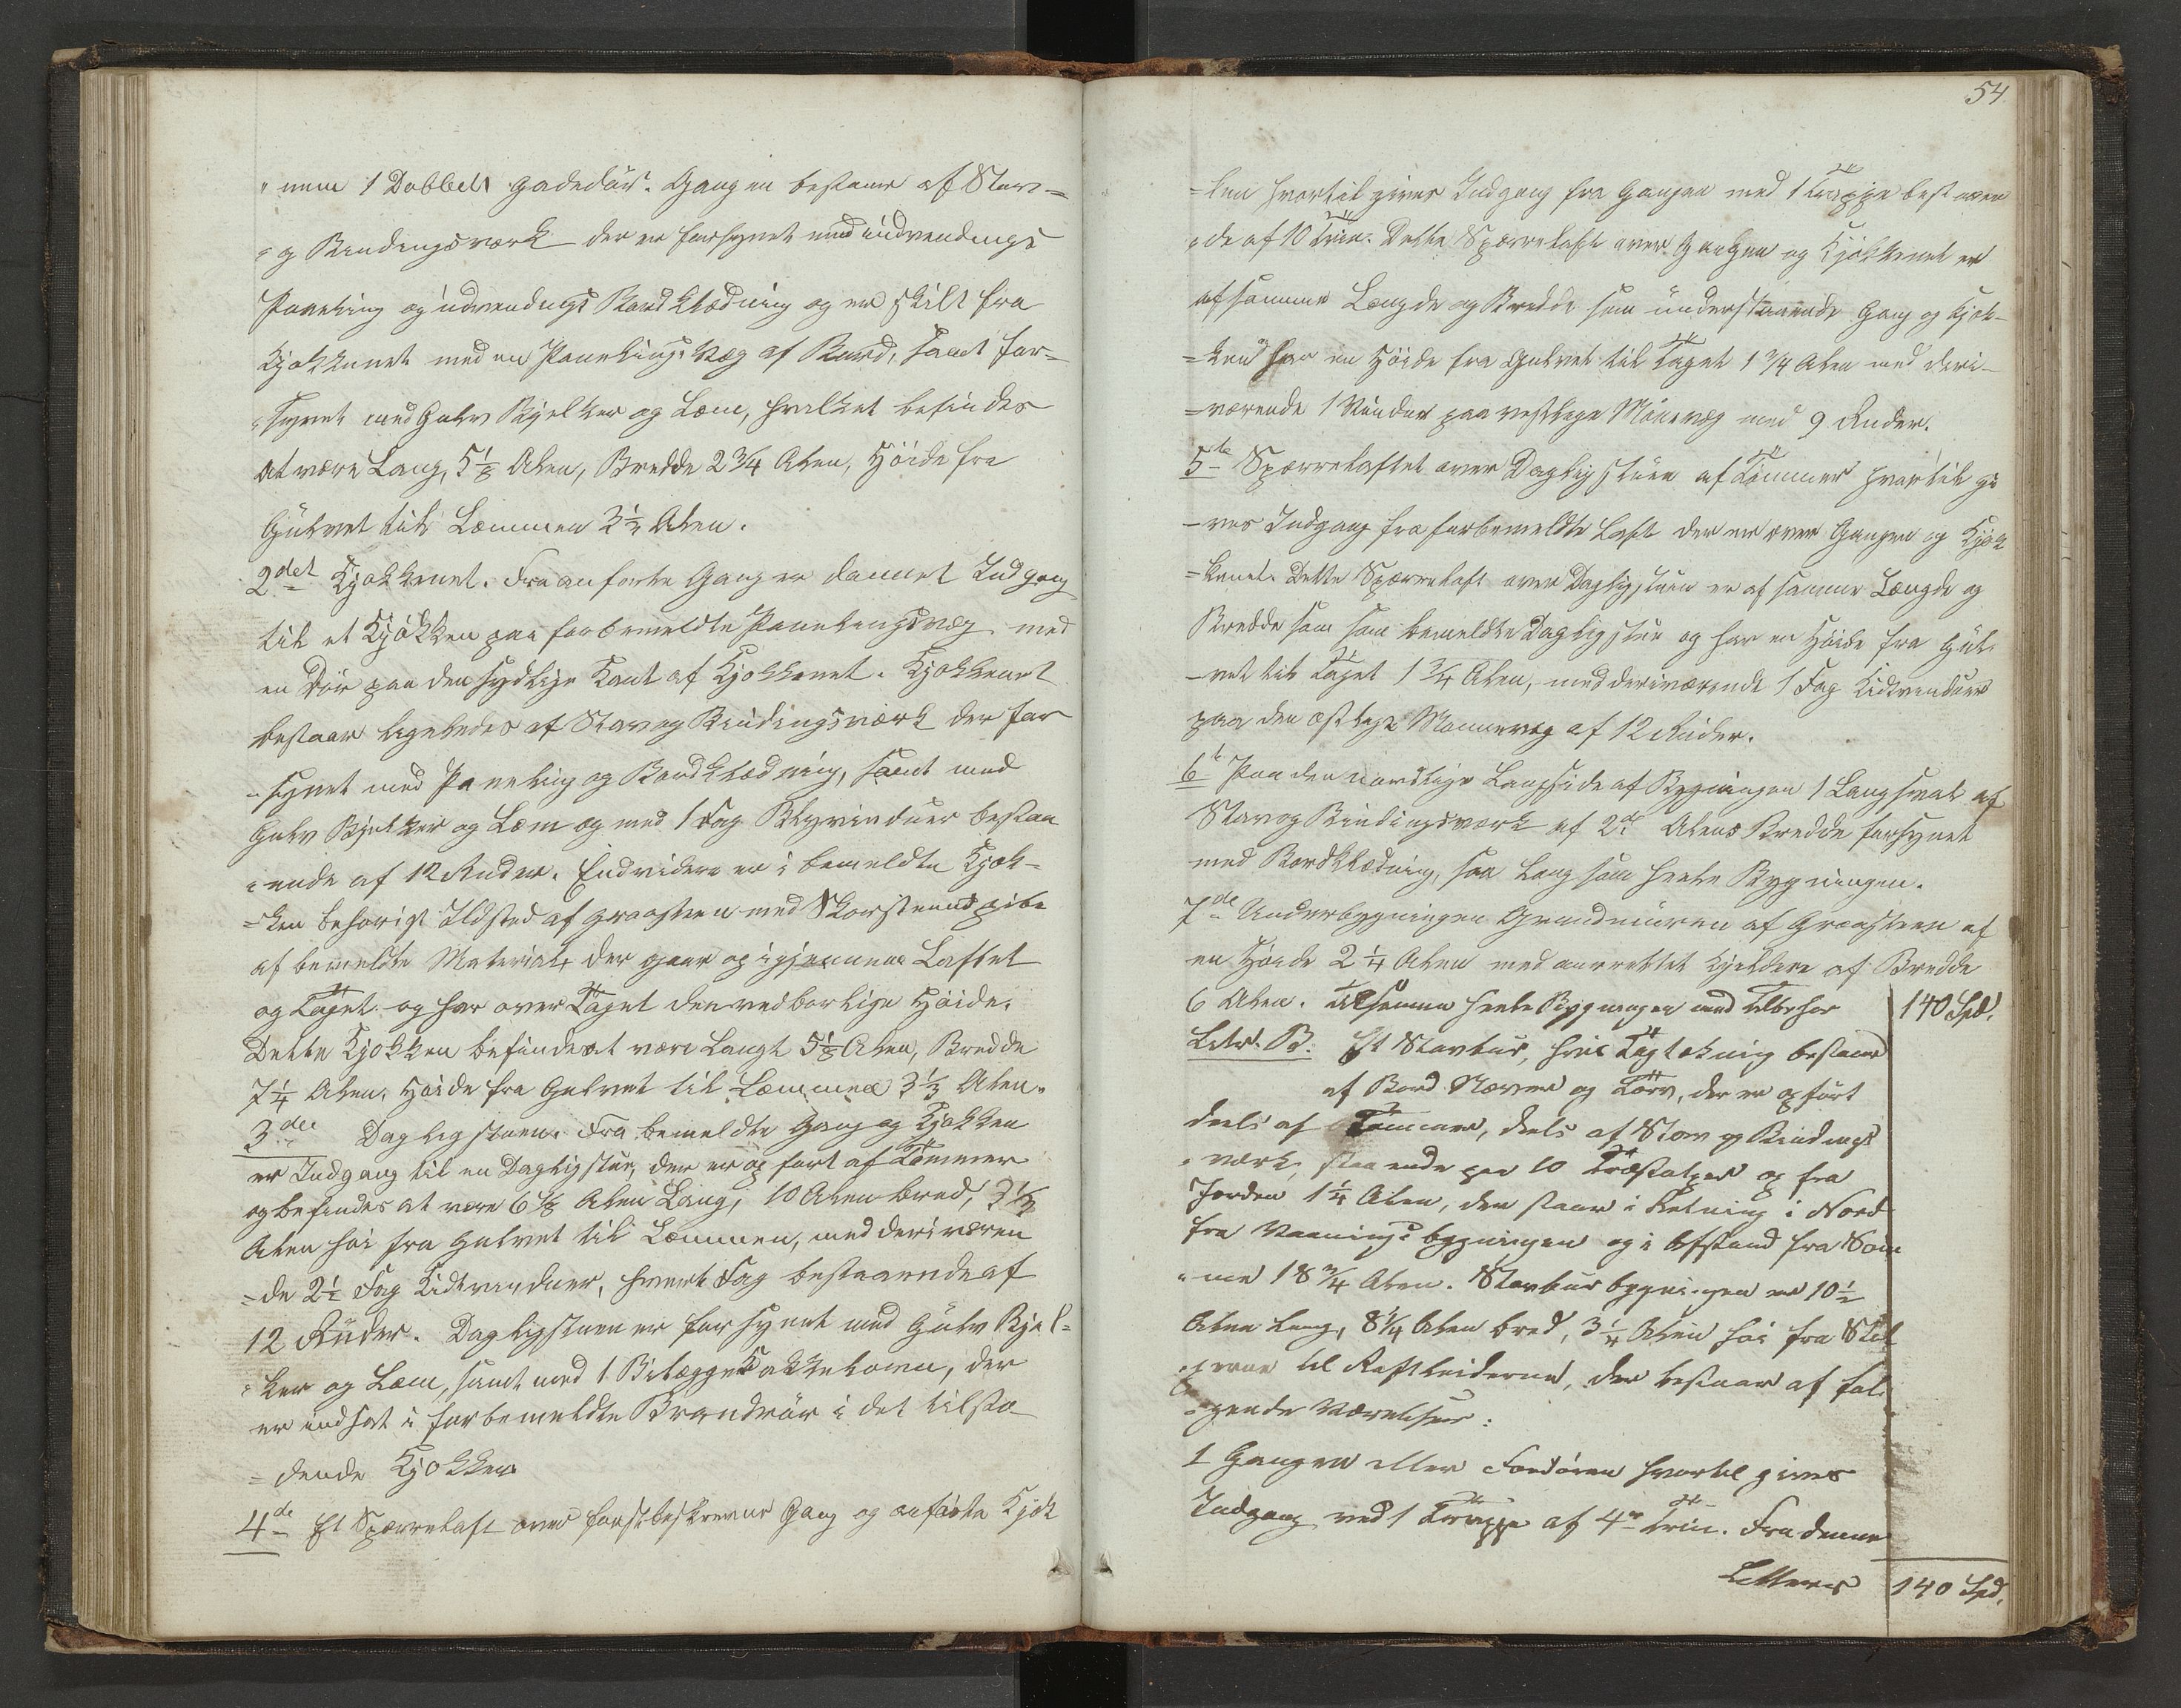 "nem 1 Dobbelt Gadedør. Gangen bestaaer af Stav=
"og Bindingsværk der er forsynet med indvendings
Paneling og udvendings Bordklædning og er skilt fra
Kjøkkenet med en Panelings Væg af Bord, samt for=
"synet med Gulv Bjelker og Lem, hvilket befindes
at være Lang, 5 1/8 Alen, Bredde 2 3/4 Alen, Høide fra
Gulvet til Lemmen 3 1/2 Alen.
2det Kjøkkenet. Fra anførte Gang er dannet Indgang
til et Kjøkken paa forbemeldte Panelingsvæg med
en Dør paa den sydlige Kant af Kjøkkenet. Kjøkkenet
bestaar ligeledes af Stav og Bindingsværk der for
"synet med Paneling og Bordklædning, samt med
Gulv Bjelker og Lem og med 1 Fag Blyvinduer bestaa
"ende af 12 Ruder. Endvidere er i bemeldte Kjøk=
=ken behørigt Ildsted af Graasteen med Skorsteenspibe
af bemeldte Materiale, der gaar op igjennem Loftet
og Taget og har over Taget den vedbørlige Høide.
Dette Kjøkken befindes at være Langt 5 1/8 Alen, Bredde
7 1/4 Alen, Høide fra Gulvet til Lemmen 3 1/2 Alen.
3die Dagligstuen. Fra bemeldte Gang og Kjøkken
er Indgang til en Dagligstue, der er opført af Tømmer
og befindes at være 6 1/8 Alen Lang, 10 Alen bred, 3 1/2
Alen høi fra Gulvet til Lemmen, med deri væren
=de 2 1/2 Fag Kidtvinduer, hvert Fag bestaaende af
12 Ruder. Dagligstuen er forsynet med Gulv Bjel=
"ker og Lem, samt med 1 Bilægger Kakkelovn, der
er indsat i forbemeldte Brandrør i det tilstø
=dende Kjøkken
4de Et Sperreloft over førstbeskrevne Gang og anførte Kjøk
54.
=ken hvortil gives Indgang fra Gangen med 1 Trappe bestaaen
"de af 10 Trin. Dette Sperreloft over Gangen og Kjøkkenet er
af samme Længde og Bredde som understaaende Gang og Kjøk=
=ken har en Høide fra Gulvet til Taget 1 3/4 Alen med deri=
=værende 1 Vindue paa vestlige Mønevæg med 9 Ruder.
5te Sperreloftet over Dagligstuen af Tømmer hvortil gi
=ves Indgang fra forbemeldte Loft der er over Gangen og Kjøk
=kenet. Dette Sperreloft over Dagligstuen er af samme Længde og
Bredde som som bemeldte Dagligstue og har en Høide fra Gul=
=vet til Taget 1 3/4 Alen, med deriværende 1 Fag Kidtvinduer
paa den østlige Mønnevæg af 12 Ruder.
6te Paa den nordlige Langside af Bygningen 1 Langsval af
Stav og Bindingsværk af 2de Alens Bredde forsynet
med Bordklædning, saa lang som heele Bygningen.
7de Underbygningen Grundmuren af Graasteen af
en Høide 2 1/4 Alen med anrettet Kjeldere af Bredde
6 Alen. Tilsammen heele Bygningen med Tilbehør 140 Spd.
Litr. B. Et Stavbur, hvis Tagtekning bestaaer
af Bord Næver og Törv, der er opført
deels af Tømmer, deels af Stav og Bindings
"værk, staaende paa 10 Træstolper og fra
Jorden 1 1/4 Alen, der staar i Retning i Nord
fra Vaaningsbygningen og i Afstand fra Sam
"me 18 3/4 Alen. Stavburbygningen er 10 1/2
Alen lang, 8 1/4 Alen bred, 3 1/4 Alen høi fra Stol
"perne til Raftleiderne, der bestaar af føl=
"gende Værelser:
1 Gangen eller Fordøren hvortil gives
Indgang ved 1 Trappe af 4re Trin. Fra denne
Latteris 140 Spd.